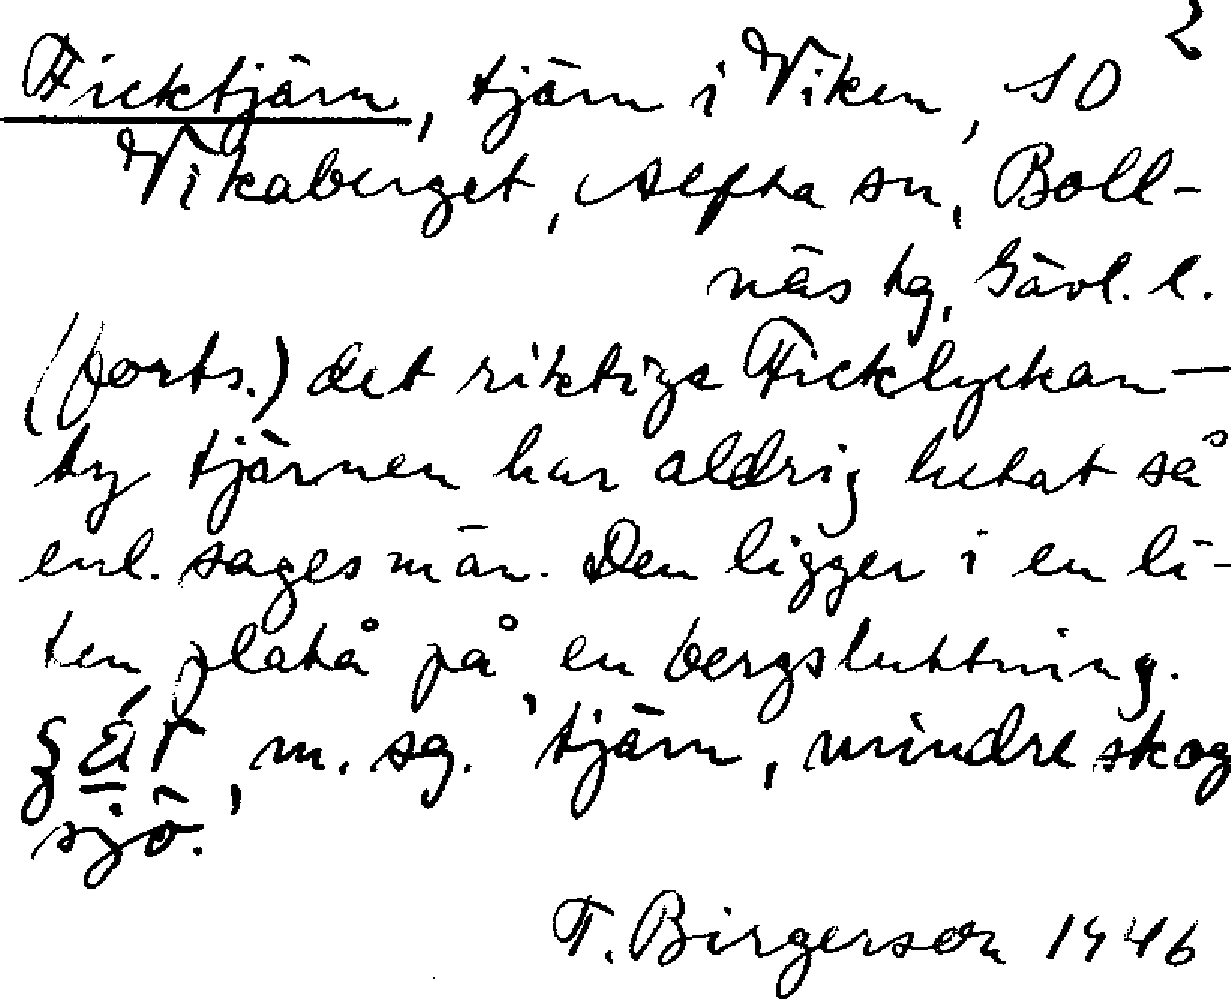 2
Ficktjärn, tjärn i Viken, SO
Vikaberget, Alfta sn, Boll-
näs tg, Gävl. l.
(forts.) det riktiga Ficklyckan —
ty tjärnen har aldrig hetat så
enl. sagesmän. Den ligger i en li-
ten platå på en bergsluttning.
m. sg. 'tjärn, mindre skog
sjö.
F. Birgerson 1946